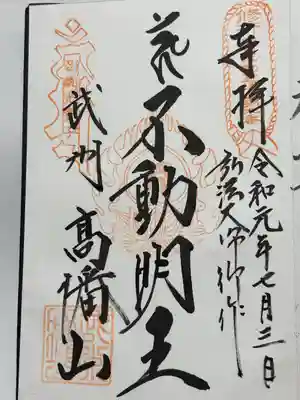 奉拝
令和元年七月三日
弘法大師御作
不動明王
武州 高幡山